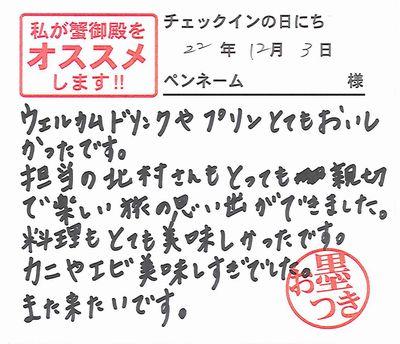 私が蟹御殿を
オススメ
します!!
チェックインの日にち
22年12月3日
ペンネーム 様
ウェルカムドリンクやプリンとてもおいし
かったです。
担当の北村さんもとっても親切
で楽しい旅の思い出ができました。
料理もとても美味しかったです。
カニやエビ美味しすぎでした。
また来たいです。
お墨つき